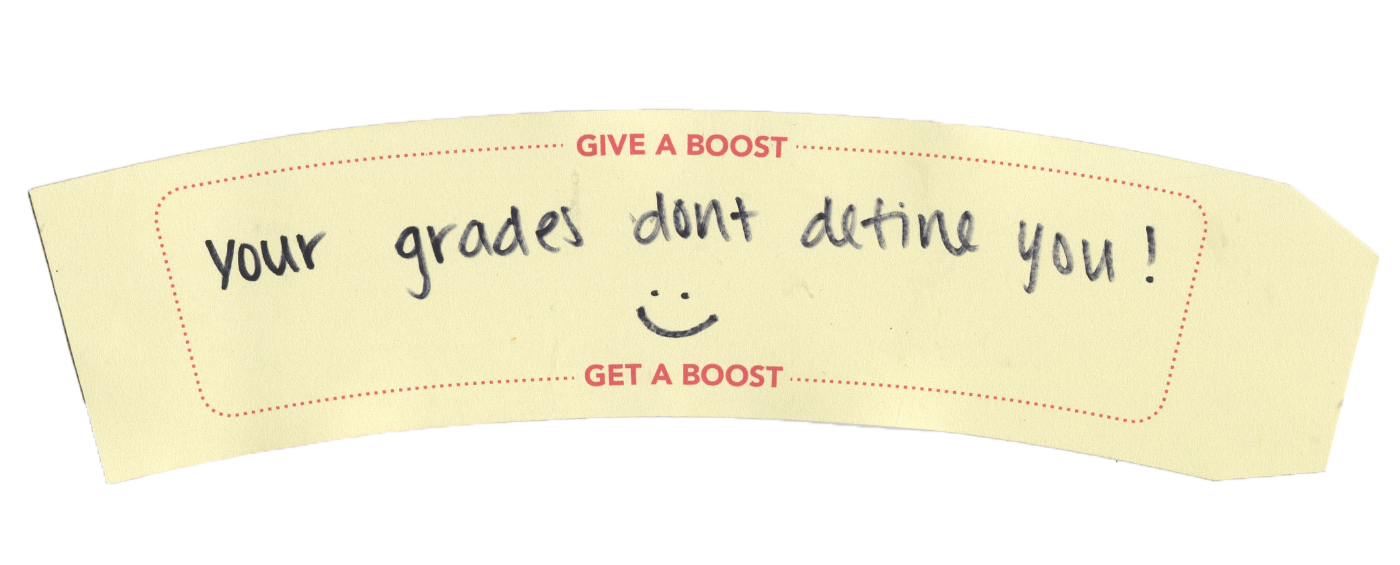 GIVE A BOOST
your grades dont define you!
GET A BOOST